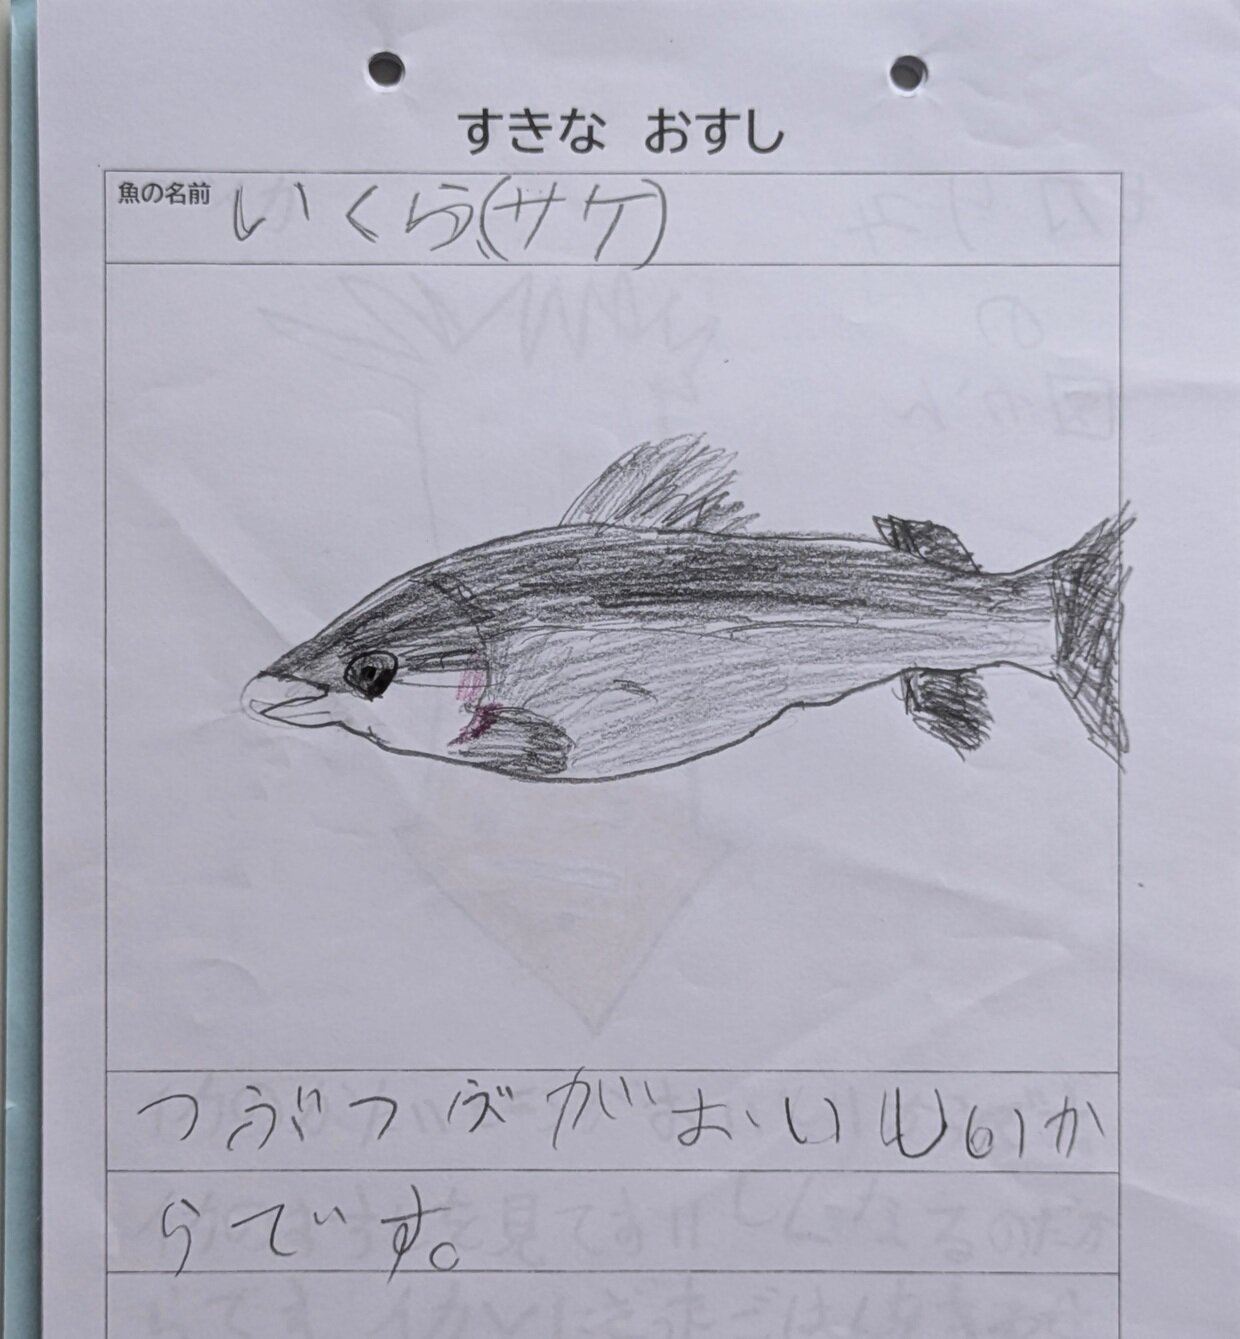 すきな おすし
魚の名前 いくら(サケ)
つぶつぶがおいしいか
らです。